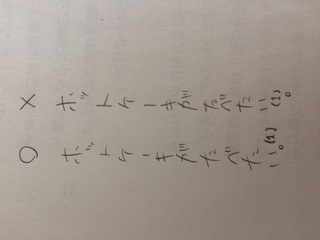 × ホットケーキがたべたい(1)。
○ ホットケーキがたべたい。(1)